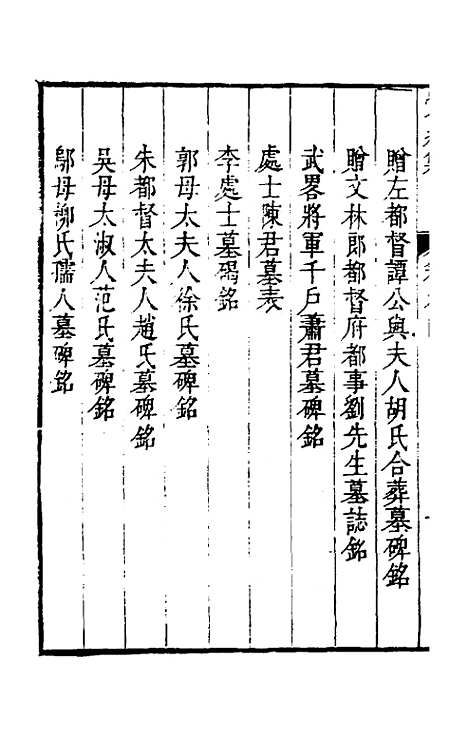 贈左都督譚公與夫人胡氏合葬墓碑銘
贈文林郎都督府都事劉先生墓誌銘
武畧將軍千戶蕭君墓碑銘
處士陳君墓表
李處士墓碣銘
郭母太夫人徐氏墓碑銘
朱都督太夫人趙氏墓碑銘
吳母太淑人范氏墓碑銘
鄔母鄒氏孺人墓碑銘